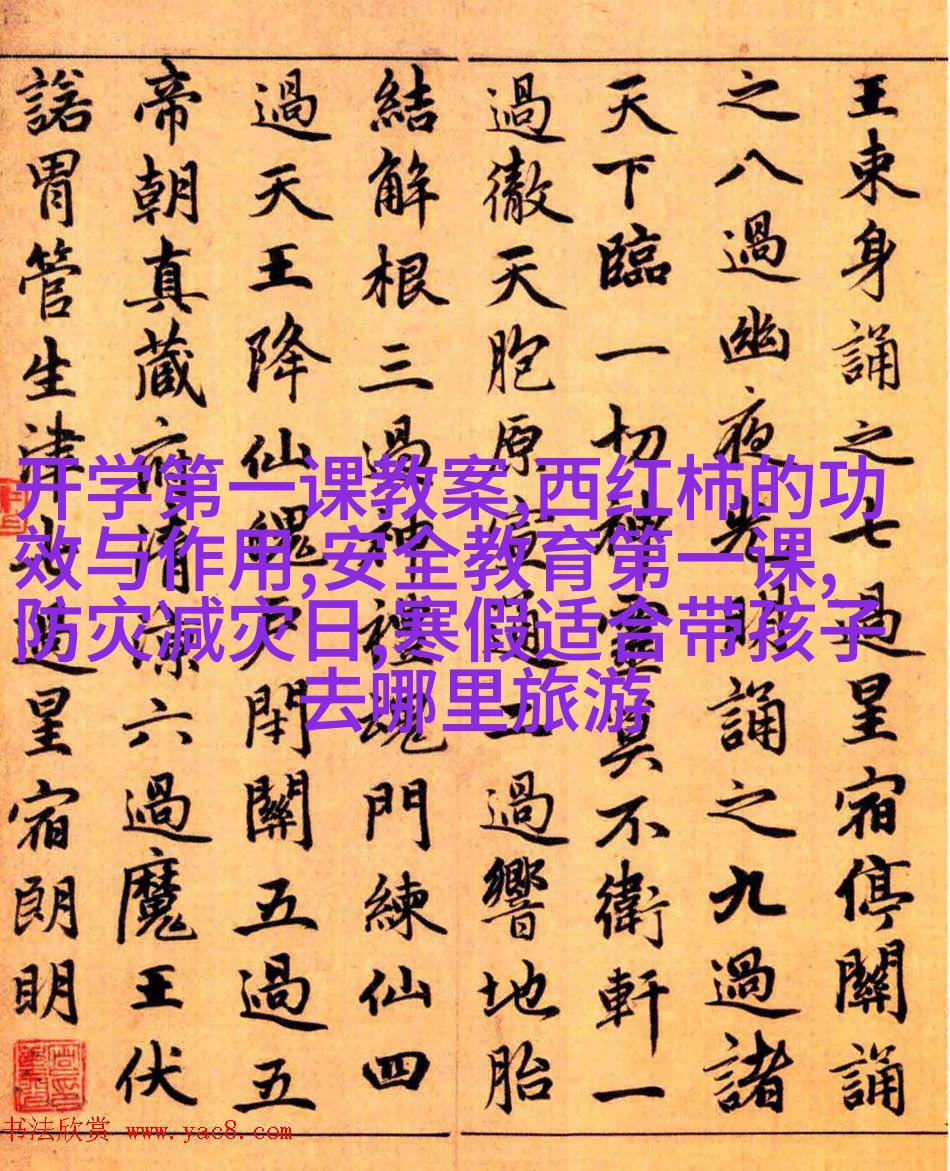 王東身誦之七過星宿停關誦
之八過幽夜光明誦之九過諸
天下臨一切神靈莫不衛軒一
過徹天胞原宣通二過響地胎
結解根三過神禮魂門練仙四
過天王降仙魄戶閇關五過五
帝朝真藏府清涼六過魔王伏
諾胃管生津七過星宿朗明
开学第一课教案,西红柿的功
效与作用,安全教育第一课,
防灾减灾日,寒假适合带孩子
去哪里旅游
书法欣赏 www.yac8.com